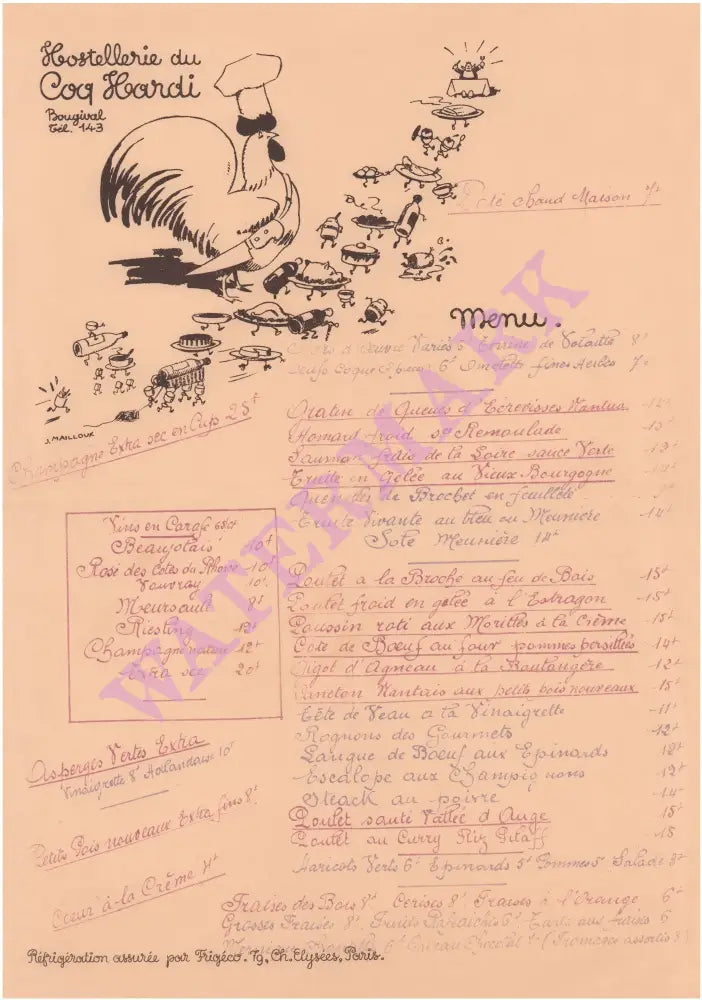 Hostellerie du
Coq Hardi
Bougival
Tél. 143
Pâté chaud Maison 7f
Menu.
Hors d'œuvre Variés Terrine de Volaille 8f
Oeufs Coque 6f Omelette fines Herbes 7f
J. MAILLOUX
Champagne Extra sec en Cup 28f
Gratin de Queues d'Écrevisses Nantua 12f
Homard froid Remoulade 15f
Saumon frais de la Loire sauce Verte
Truite en Gelée au Vieux Bourgogne
Quenelles de Brochet en feuilleté
Truite Vivante au bleu ou Meunière 14f
Sole Meunière 14f
Vins en Carafe
Beaujolais 10f
Rosé des Côtes du Rhône 10f
Vouvray 10f
Meursault
Riesling 12f
Champagne nature 12f
Extra sec 20f
Poulet à la Broche au feu de Bois 15f
Poulet froid en gelée à l'Estragon 15f
Poussin roti aux Morilles à la Crème 15f
Côte de Bœuf au four pommes persillées 14f
Gigot d'Agneau à la Boulangère 12f
Caneton Nantais aux petits pois nouveaux 15f
Tête de Veau à la Vinaigrette 11f
Rognons des Gourmets 12f
Langue de Bœuf aux Epinards
Escalope aux Champignons 12f
Steack au poivre 14f
Poulet sauté Vallée d'Auge 15f
Poulet au Curry Riz Pilaff 15
Haricots Verts 6f Epinards 5f Pommes 5f Salade
Asperges Vertes Extra
Vinaigrette 8f Hollandaise 10f
Petits Pois nouveaux Extra fins 8f
Coeur à la Crème 4f
Fraises des Bois 8f Cerises 8f Fraises à l'Orange 6f
Grosses Fraises 8f Fruits Rafraichis 6f Tarte aux fraises 6
Meringue 6f Chocolat (Fromages assortis
Réfrigération assurée par Frigéco. 79, Ch. Elysées, Paris.
WATERMARK